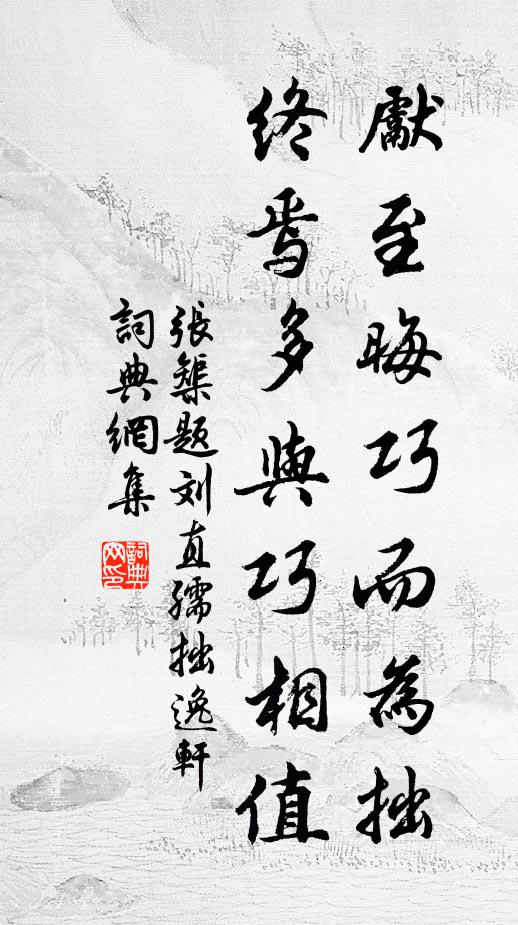 獻至晦巧而為拙
終焉多與巧相值
張榘题刘直孺拙逸軒
詞典網集
詞典網印